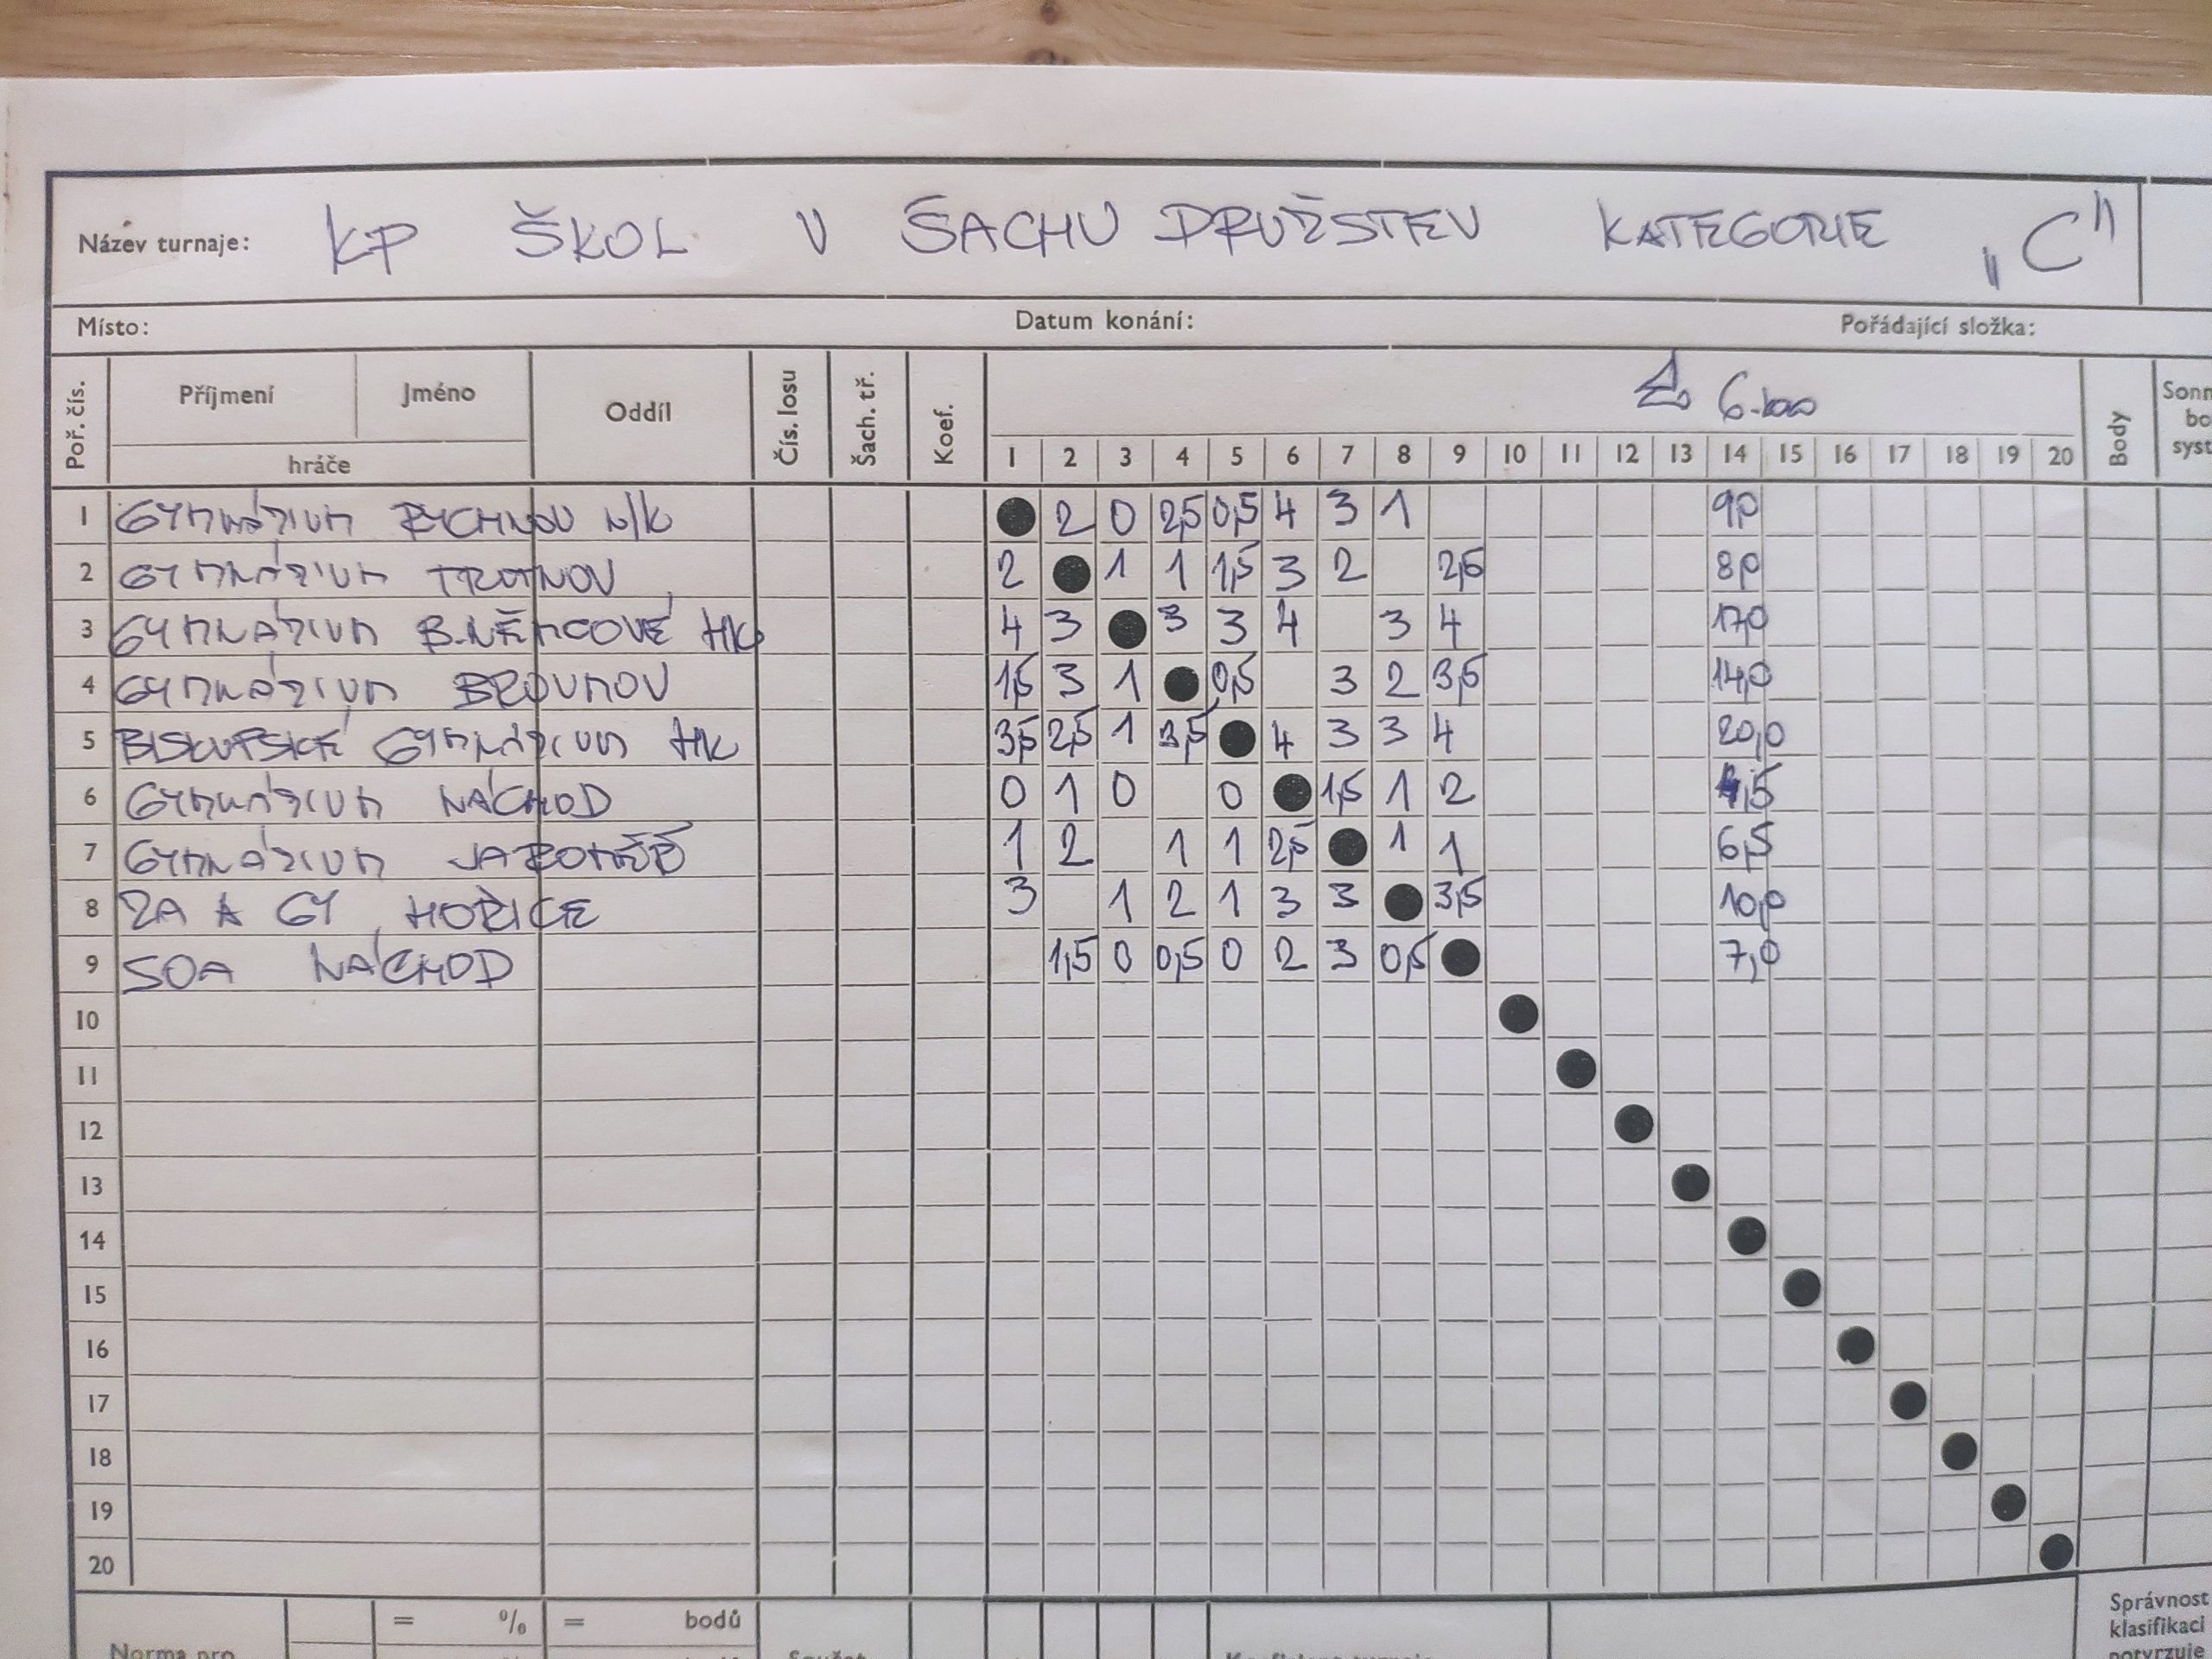 Název turnaje: KP ŠKOL V ŠACHU DRUŽSTEV KATEGORIE „C"
Místo: Datum konání: Pořádající složka:
Poř. čís. Příjmení Jméno Oddíl Čís. losu Šach. tř. Koef. Body
hráče 1 2 3 4 5 6 7 8 9 10 11 12 13 14 15 16 17 18 19 20
1 GYMNÁZIUM RYCHNOV N/K 2 0 2,5 0,5 4 3 1 9,0
2 GYMNÁZIUM TRUTNOV 2 1 1 1,5 3 2 2,5 8,0
3 GYMNÁZIUM B.NĚMCOVÉ HK 4 3 3 3 4 3 4 17,0
4 GYMNÁZIUM BROUMOV 1,5 3 1 0,5 3 2 3,5 14,0
5 BISKUPSKÉ GYMNÁZIUM HK 3,5 2,5 1 3,5 4 3 3 4 20,0
6 GYMNÁZIUM NÁCHOD 0 1 0 0 1,5 1 2 4,5
7 GYMNÁZIUM JAROMĚŘ 1 2 1 1 2,5 1 1 6,5
8 ZA A GY HOŘICE 3 1 2 1 3 3 3,5 10,0
9 SOA NÁCHOD 1,5 0 0,5 0 2 3 0,5 7,0
10
11
12
13
14
15
16
17
18
19
20
= % = bodů
Norma pro
Správnost
klasifikaci
potvrzuje